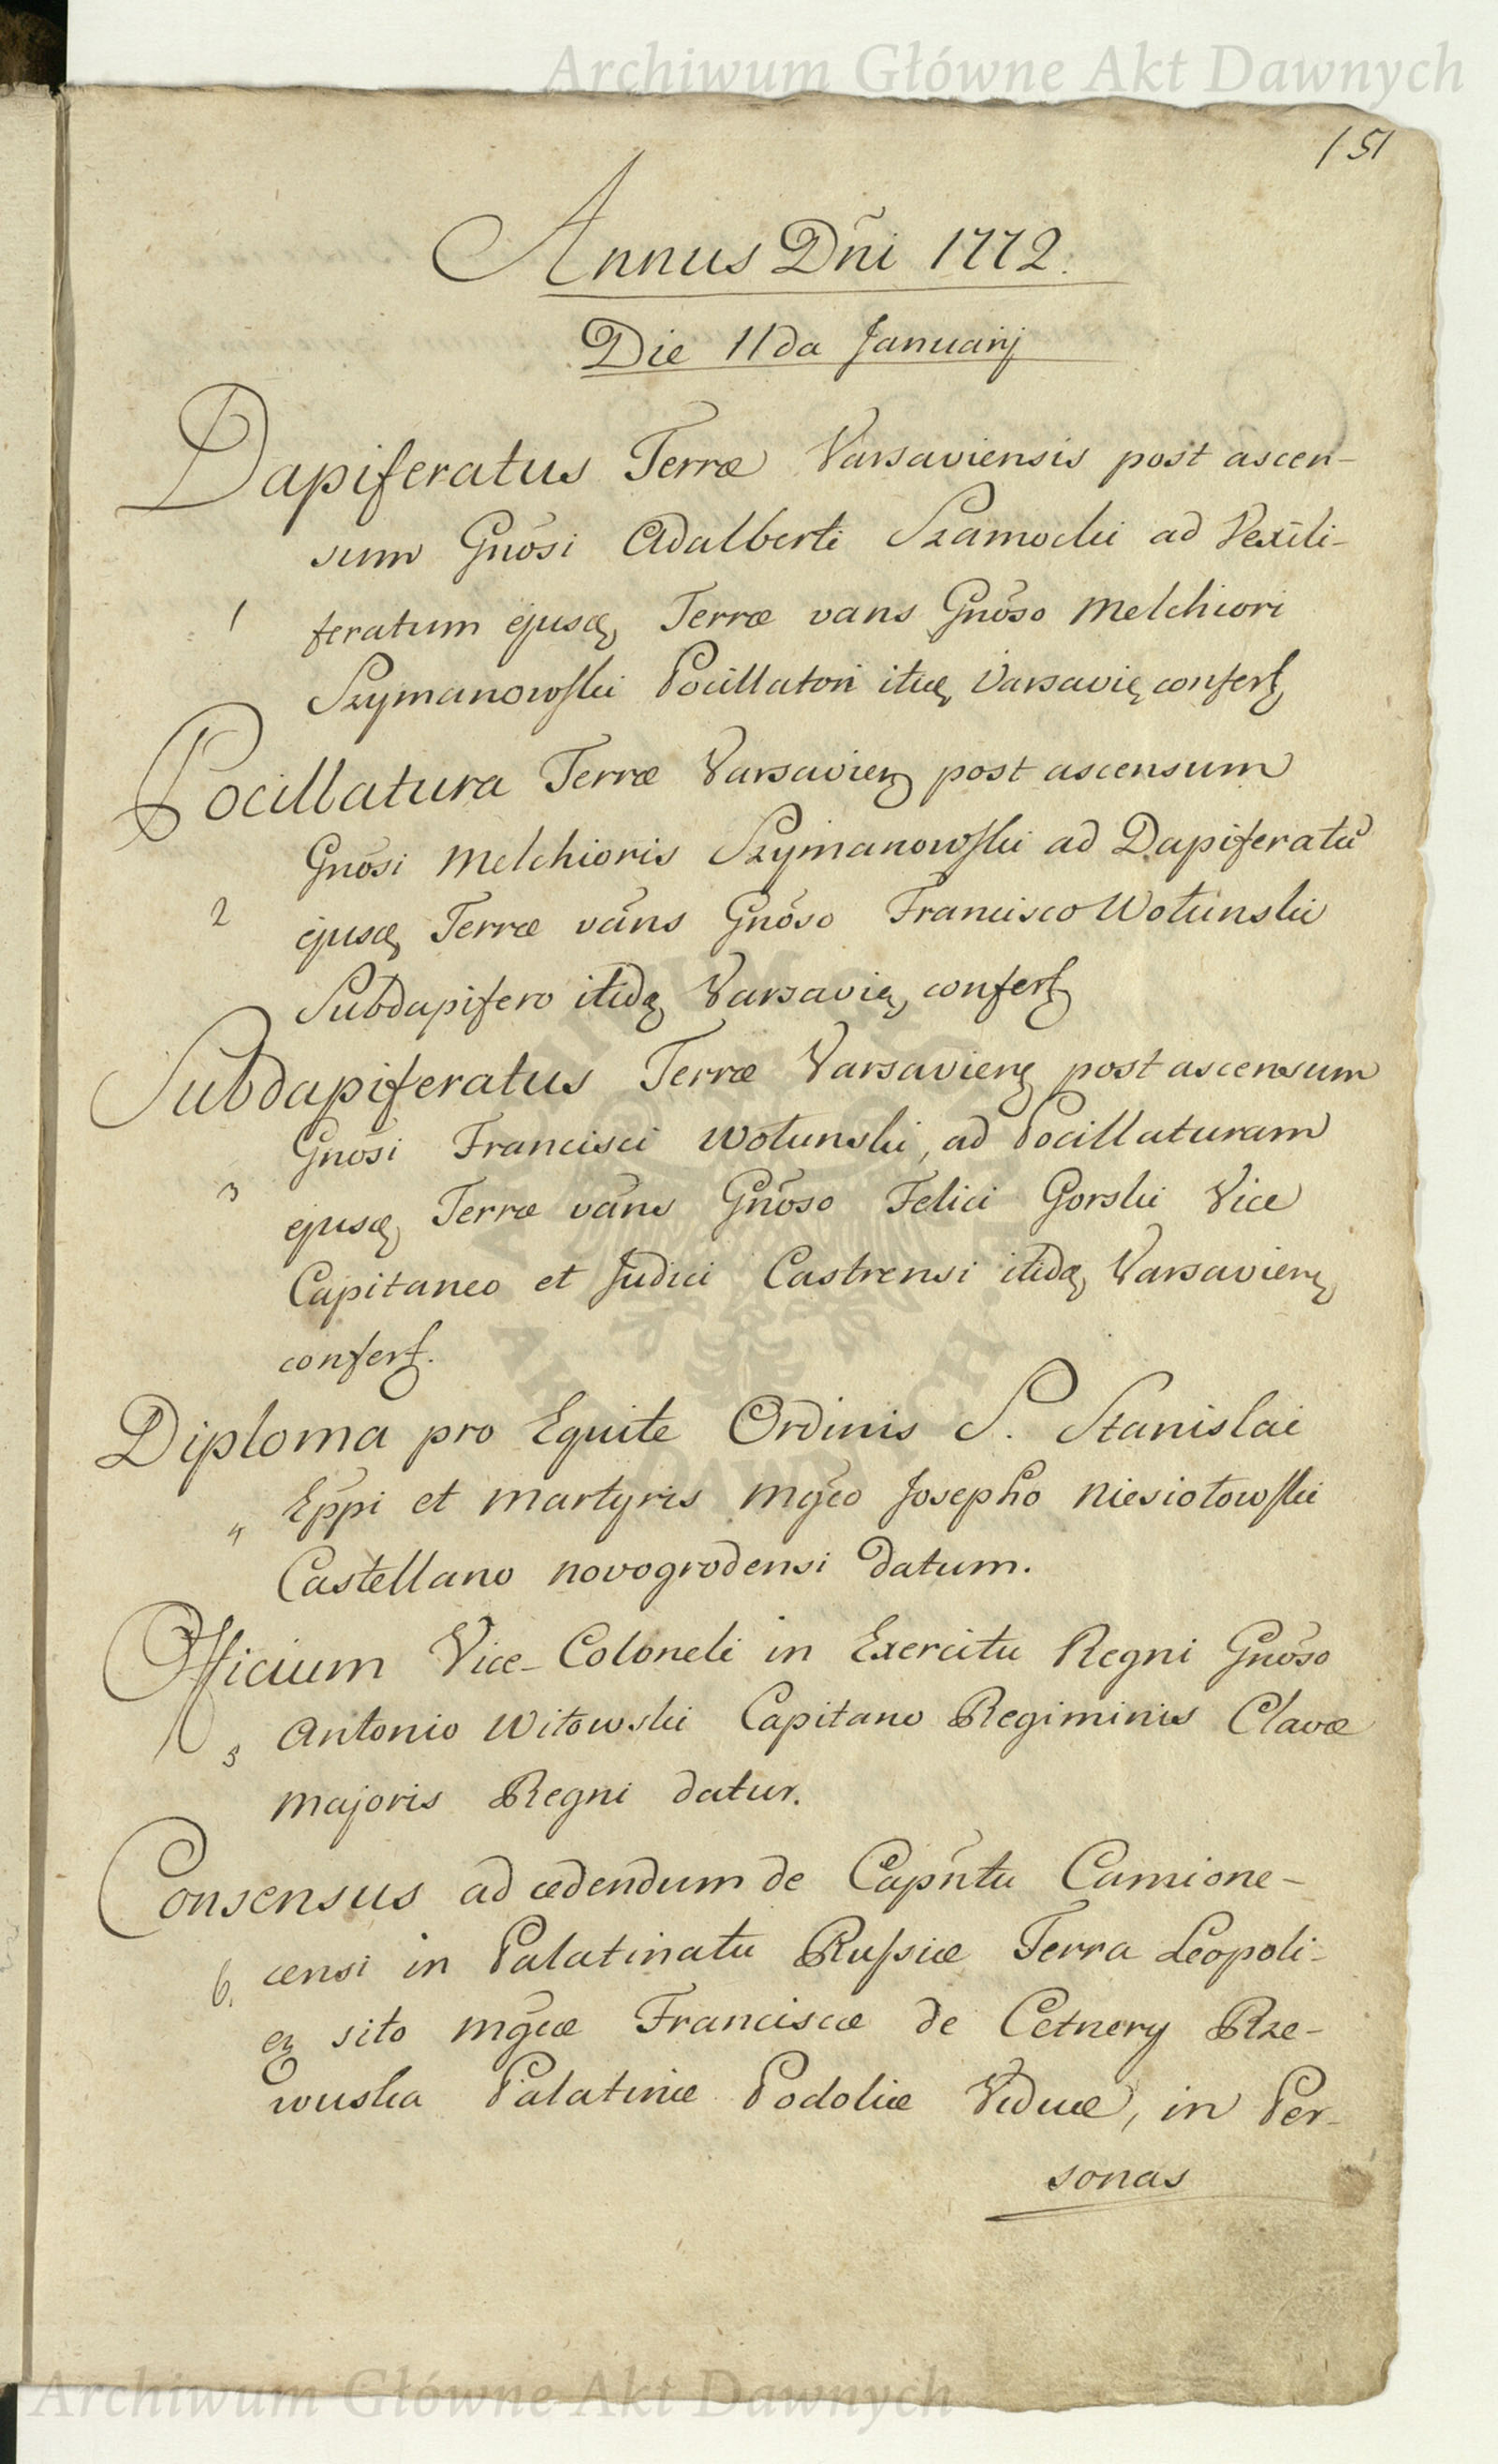 Archiwum Główne Akt Dawnych
151
Annus Dñi 1772.
Die 11da Januarij
Dapiferatus Terræ Varsaviensis post ascen-
sum Gnõsi Adalberti Szamocki ad Vexili-
1 feratum ejusq, Terræ vans Gnõso Melchiori
Szymanowski Pocillatori itiq, Varsavię confert
Pocillatura Terræ Varsavien post ascensum
Gnõsi Melchioris Szymanowski ad Dapiferatũ
2 ejusq, Terræ vãns Gnõso Francisco Wołunski
Subdapifero itidq, Varsavię, confert
Subdapiferatus Terræ Varsavienę post ascensum
Gnõsi Francisci Wołunski, ad Pocillaturam
3 ejusq, Terræ vãns Gnõso Felici Gorski Vice
Capitaneo et Judici Castrensi itidq, Varsavienę
confert.
Diploma pro Equite Ordinis S. Stanislai
4 Eppi et Martyris Mgco Josepho Niesiołowski
Castellano Novogrodensi datum.
Officium Vice-Coloneli in Exercitu Regni Gnõso
5 Antonio Witowski Capitano Regiminis Clavæ
Majoris Regni datur.
Consensus ad cedendum de Capñtu Camione-
6. censi in Palatinatu Russiæ Terra Leopoli-
en sito Mgcæ Franciscæ de Cetnery Rze-
wuska Palatinæ Podoliæ Viduæ, in Per-
sonas
ARCHIWUM GŁÓWNE AKT DAWNYCH
Archiwum Główne Akt Dawnych